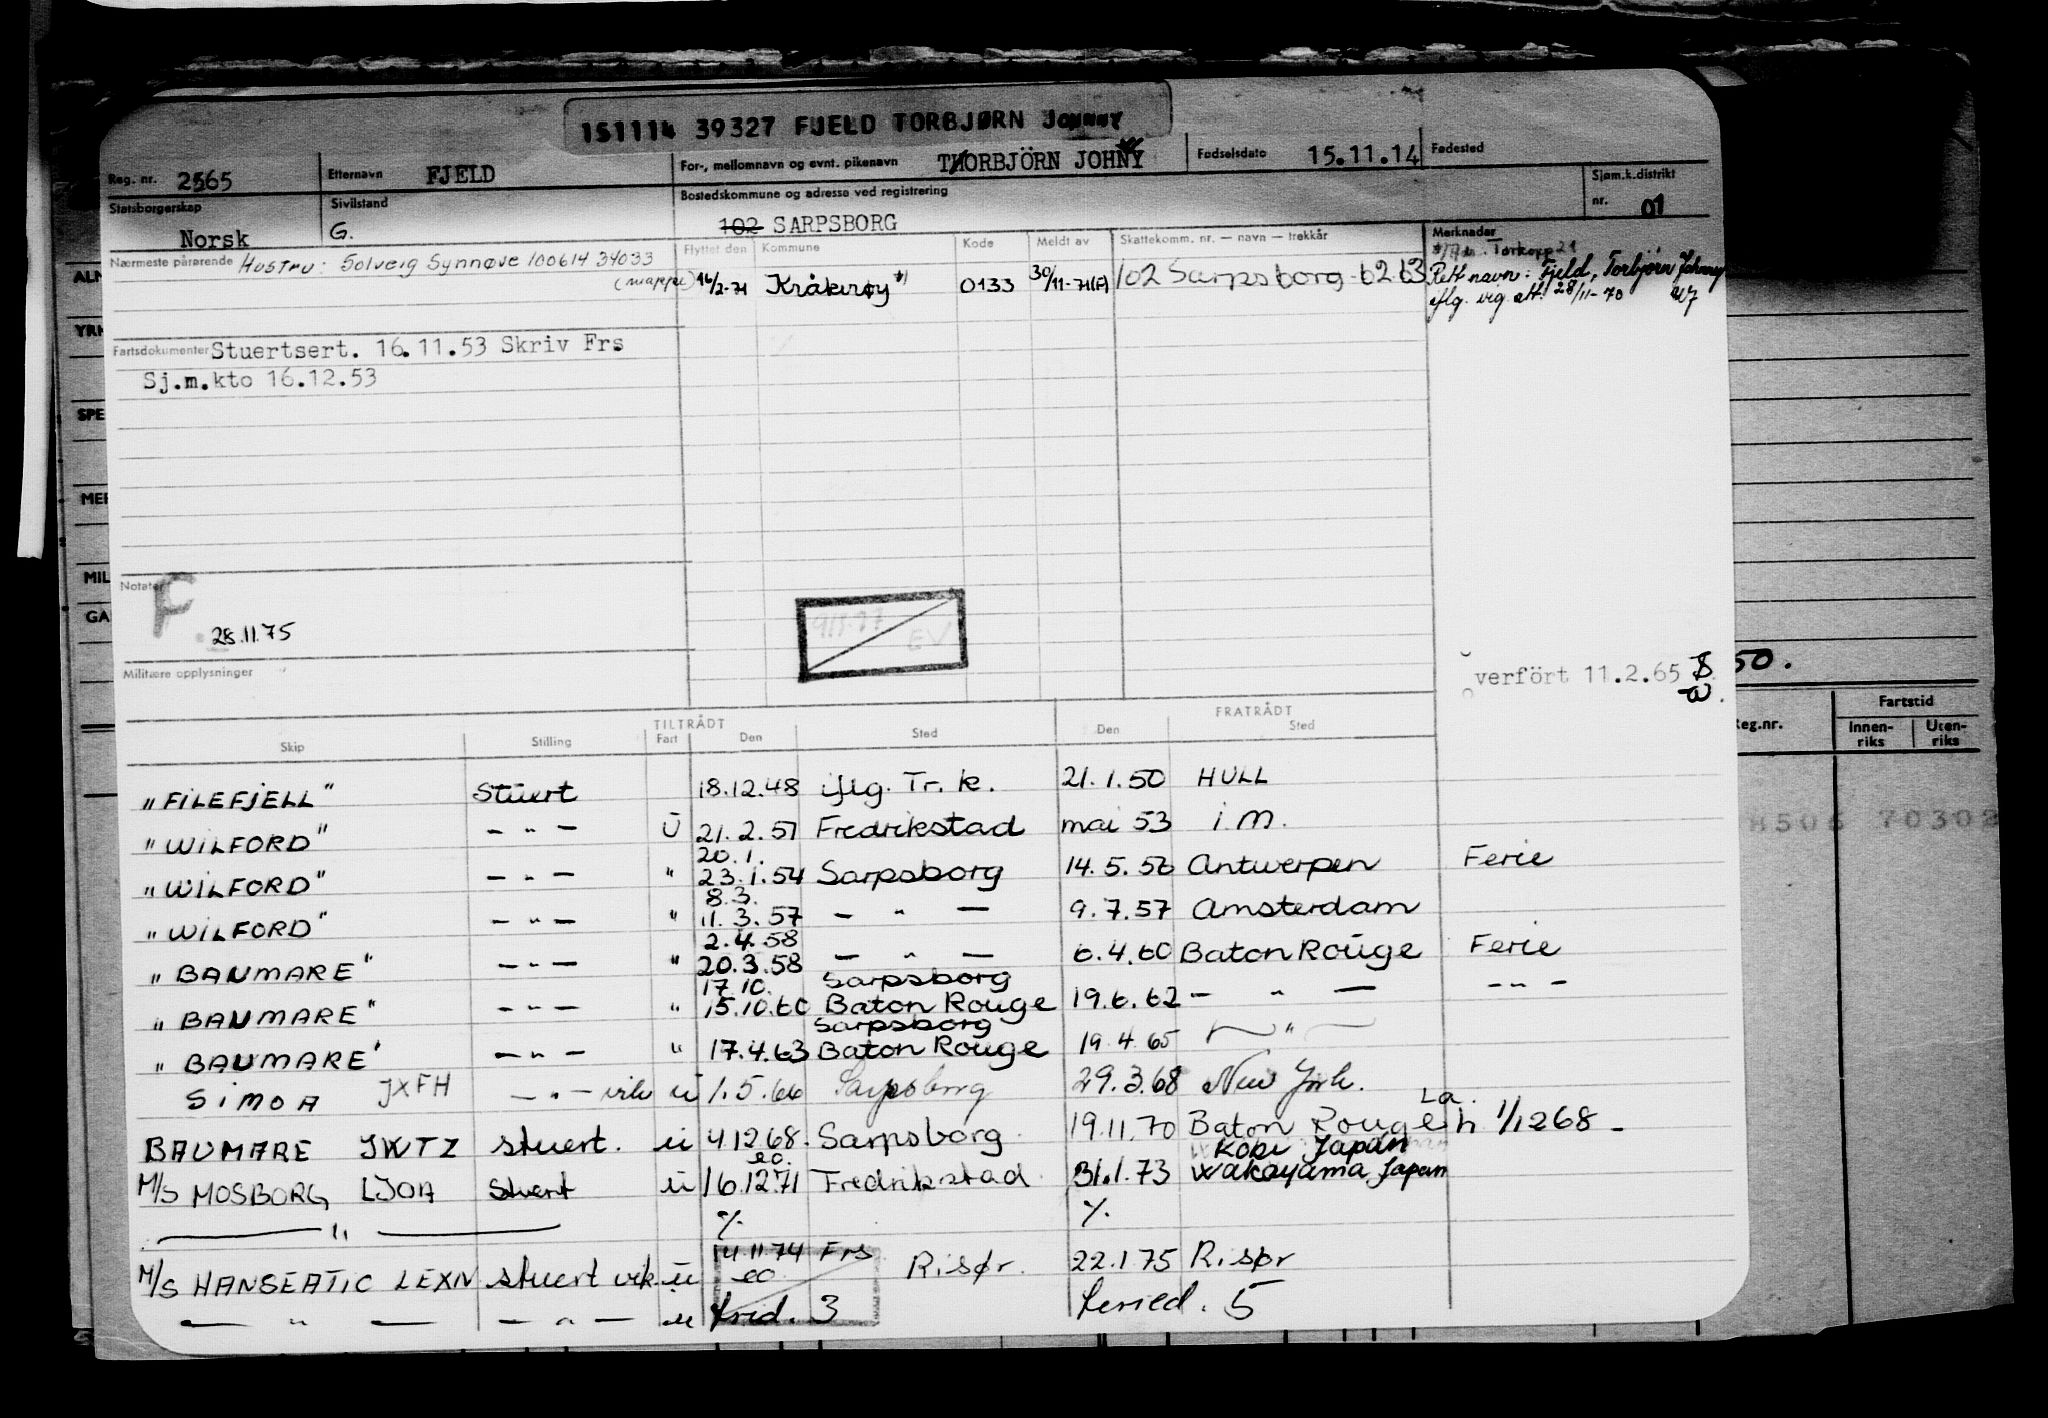 151114 39327 FJELD TORBJØRN JOHNNY
Reg. nr. 2565 Etternavn FJELD For-, mellomnavn og evnt. pikenavn THORBJÖRN JOHNY Fødselsdato 15.11.14 Fødested
Statsborgerskap Norsk Sivilstand G. Bostedskommune og adresse ved registrering 102 SARPSBORG Sjøm.k.distrikt nr. 01
Nærmeste pårørende Hustru: Solveig Synnøve 100614 34033
(mappe)
Flyttet den Kommune Kode Meldt av Skattekomm. nr. — navn — trekkår Merknader
16/2-71 Kråkerøy *) 0133 30/11-71(A) 102 Sarpsborg 62 63
Torkopp 21
Rett navn: Fjeld, Torbjørn Johnny
iflg. vig. att. 28/11-70
Fartsdokumenter Stuertsert. 16.11.53 Skriv Frs
Sj.m.kto 16.12.53
Notater F
28.11.75
EV
Militære opplysninger
verfört 11.2.65
50.
TILTRÅDT FRATRÅDT
Skip Stilling Fart Den Sted Den Sted
"FILEFJELL" Stuert 18.12.48 iflg. Tr. k. 21.1.50 HULL
"WILFORD" — " — Ü 21.2.51 Fredrikstad mai 53 i.m.
20.1.
"WILFORD" — " — " 23.1.54 Sarpsborg 14.5.56 Antwerpen Ferie
8.3.
"WILFORD" — " — " 11.3.57 — " — 9.7.57 Amsterdam
2.4.58
"BAUMARE" — " — " 20.3.58 — " — 6.4.60 Baton Rouge Ferie
17.10. Sarpsborg
"BAUMARE" — " — " 15.10.60 Baton Rouge 19.6.62 — " — — " —
Sarpsborg
"BAUMARE" — " — " 17.4.63 Baton Rouge 19.4.65 — " —
SIMOA JXFH — " — vik ü 1.5.66 Sarpsborg 29.3.68 New York.
BAUMARE JWTZ stuert. ü 4.12.68. Sarpsborg 19.11.70 Baton Rouge La. h 1/1268 -
eo. Kobe Japan
M/S MOSBORG LJOA Stuert ü 16.12.71 Fredrikstad 31.1.73 Wakayama Japan
— " — ٪ ٪
M/S HANSEATIC LEXN stuert vik. ü 14.11.74 Frs Risør. 22.1.75 Risør
eo
— " — — " — ü 3 5
ALM
YRK
SPE
MER
MIL
GA
Reg.nr. Fartstid
Innen-riks Uten-riks
70302